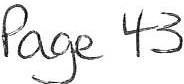 Page 43